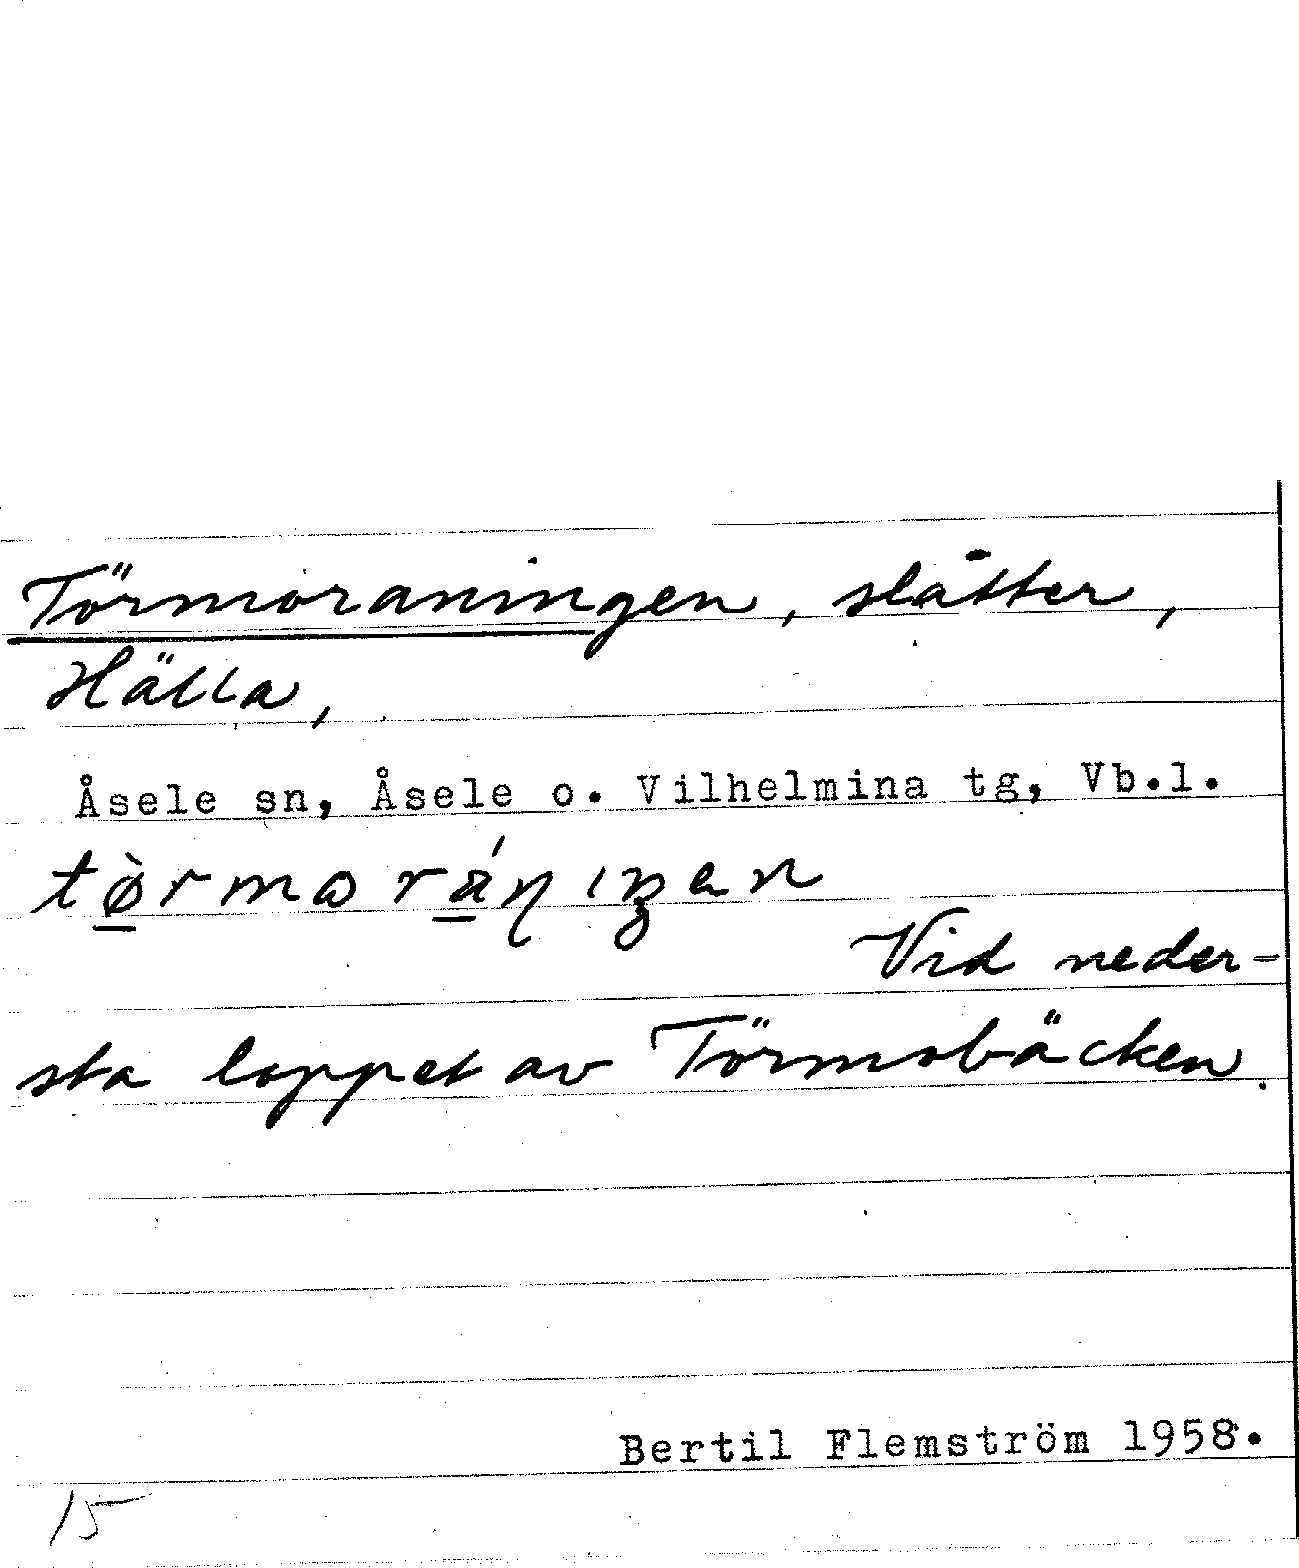 Törmoraningen, slåtter,
Hälla,
Åsele sn, Åsele o. Vilhelmina tg, Vb.l.
Vid neder-
sta loppet av Törmobäcken.
Bertil Flemström 1958.
15